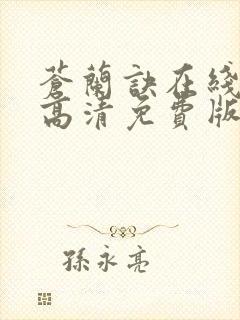 蒼蘭訣在綫
高清免費版
孫永亮